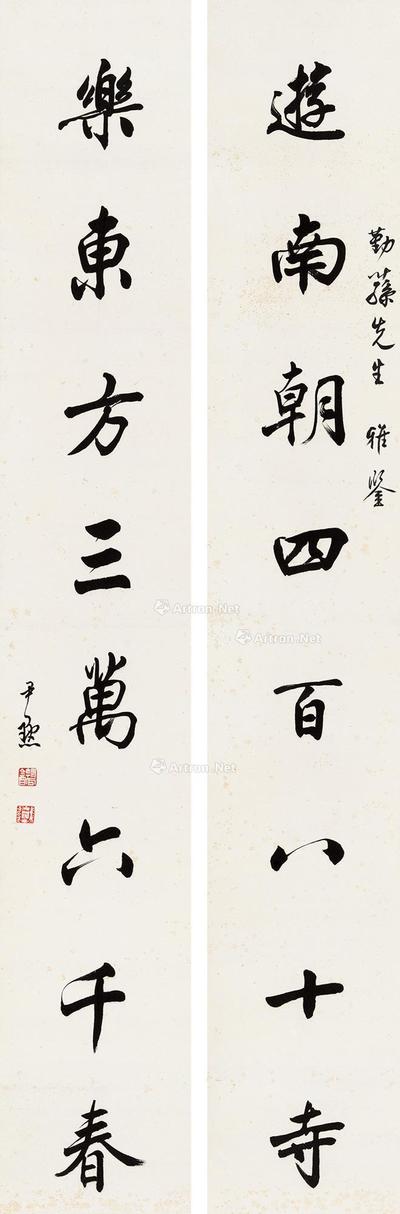 勤蓀先生 雅鑒
遊南朝四百八十寺
樂東方三萬六千春
尹默
Artron.Net
Artron.Net
Artron.Net